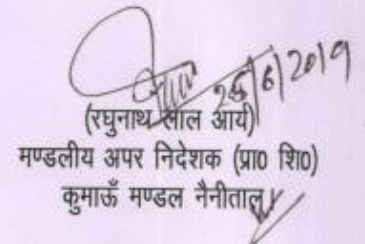 26/6/2019
(रघुनाथ लाल आर्य)
मण्डलीय अपर निदेशक (प्रा० शि०)
कुमाऊँ मण्डल नैनीताल